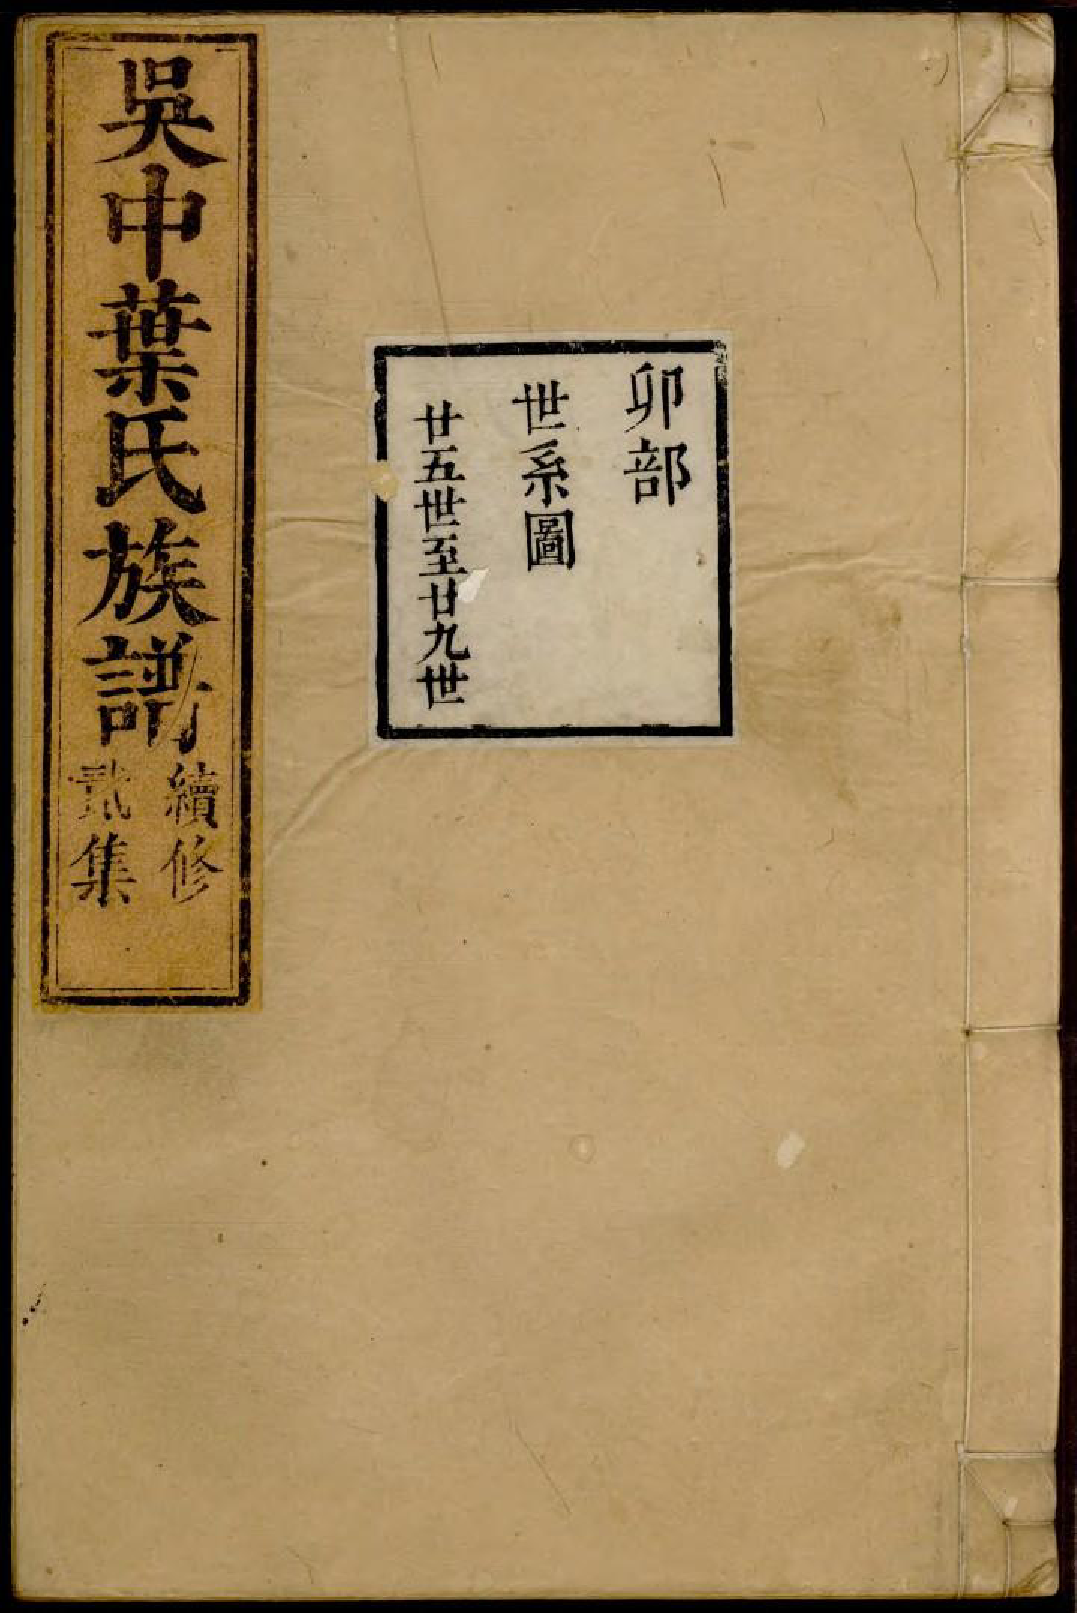 吳中葉氏族譜
續修
貳集
卯部
世系圖
廿五世至廿九世